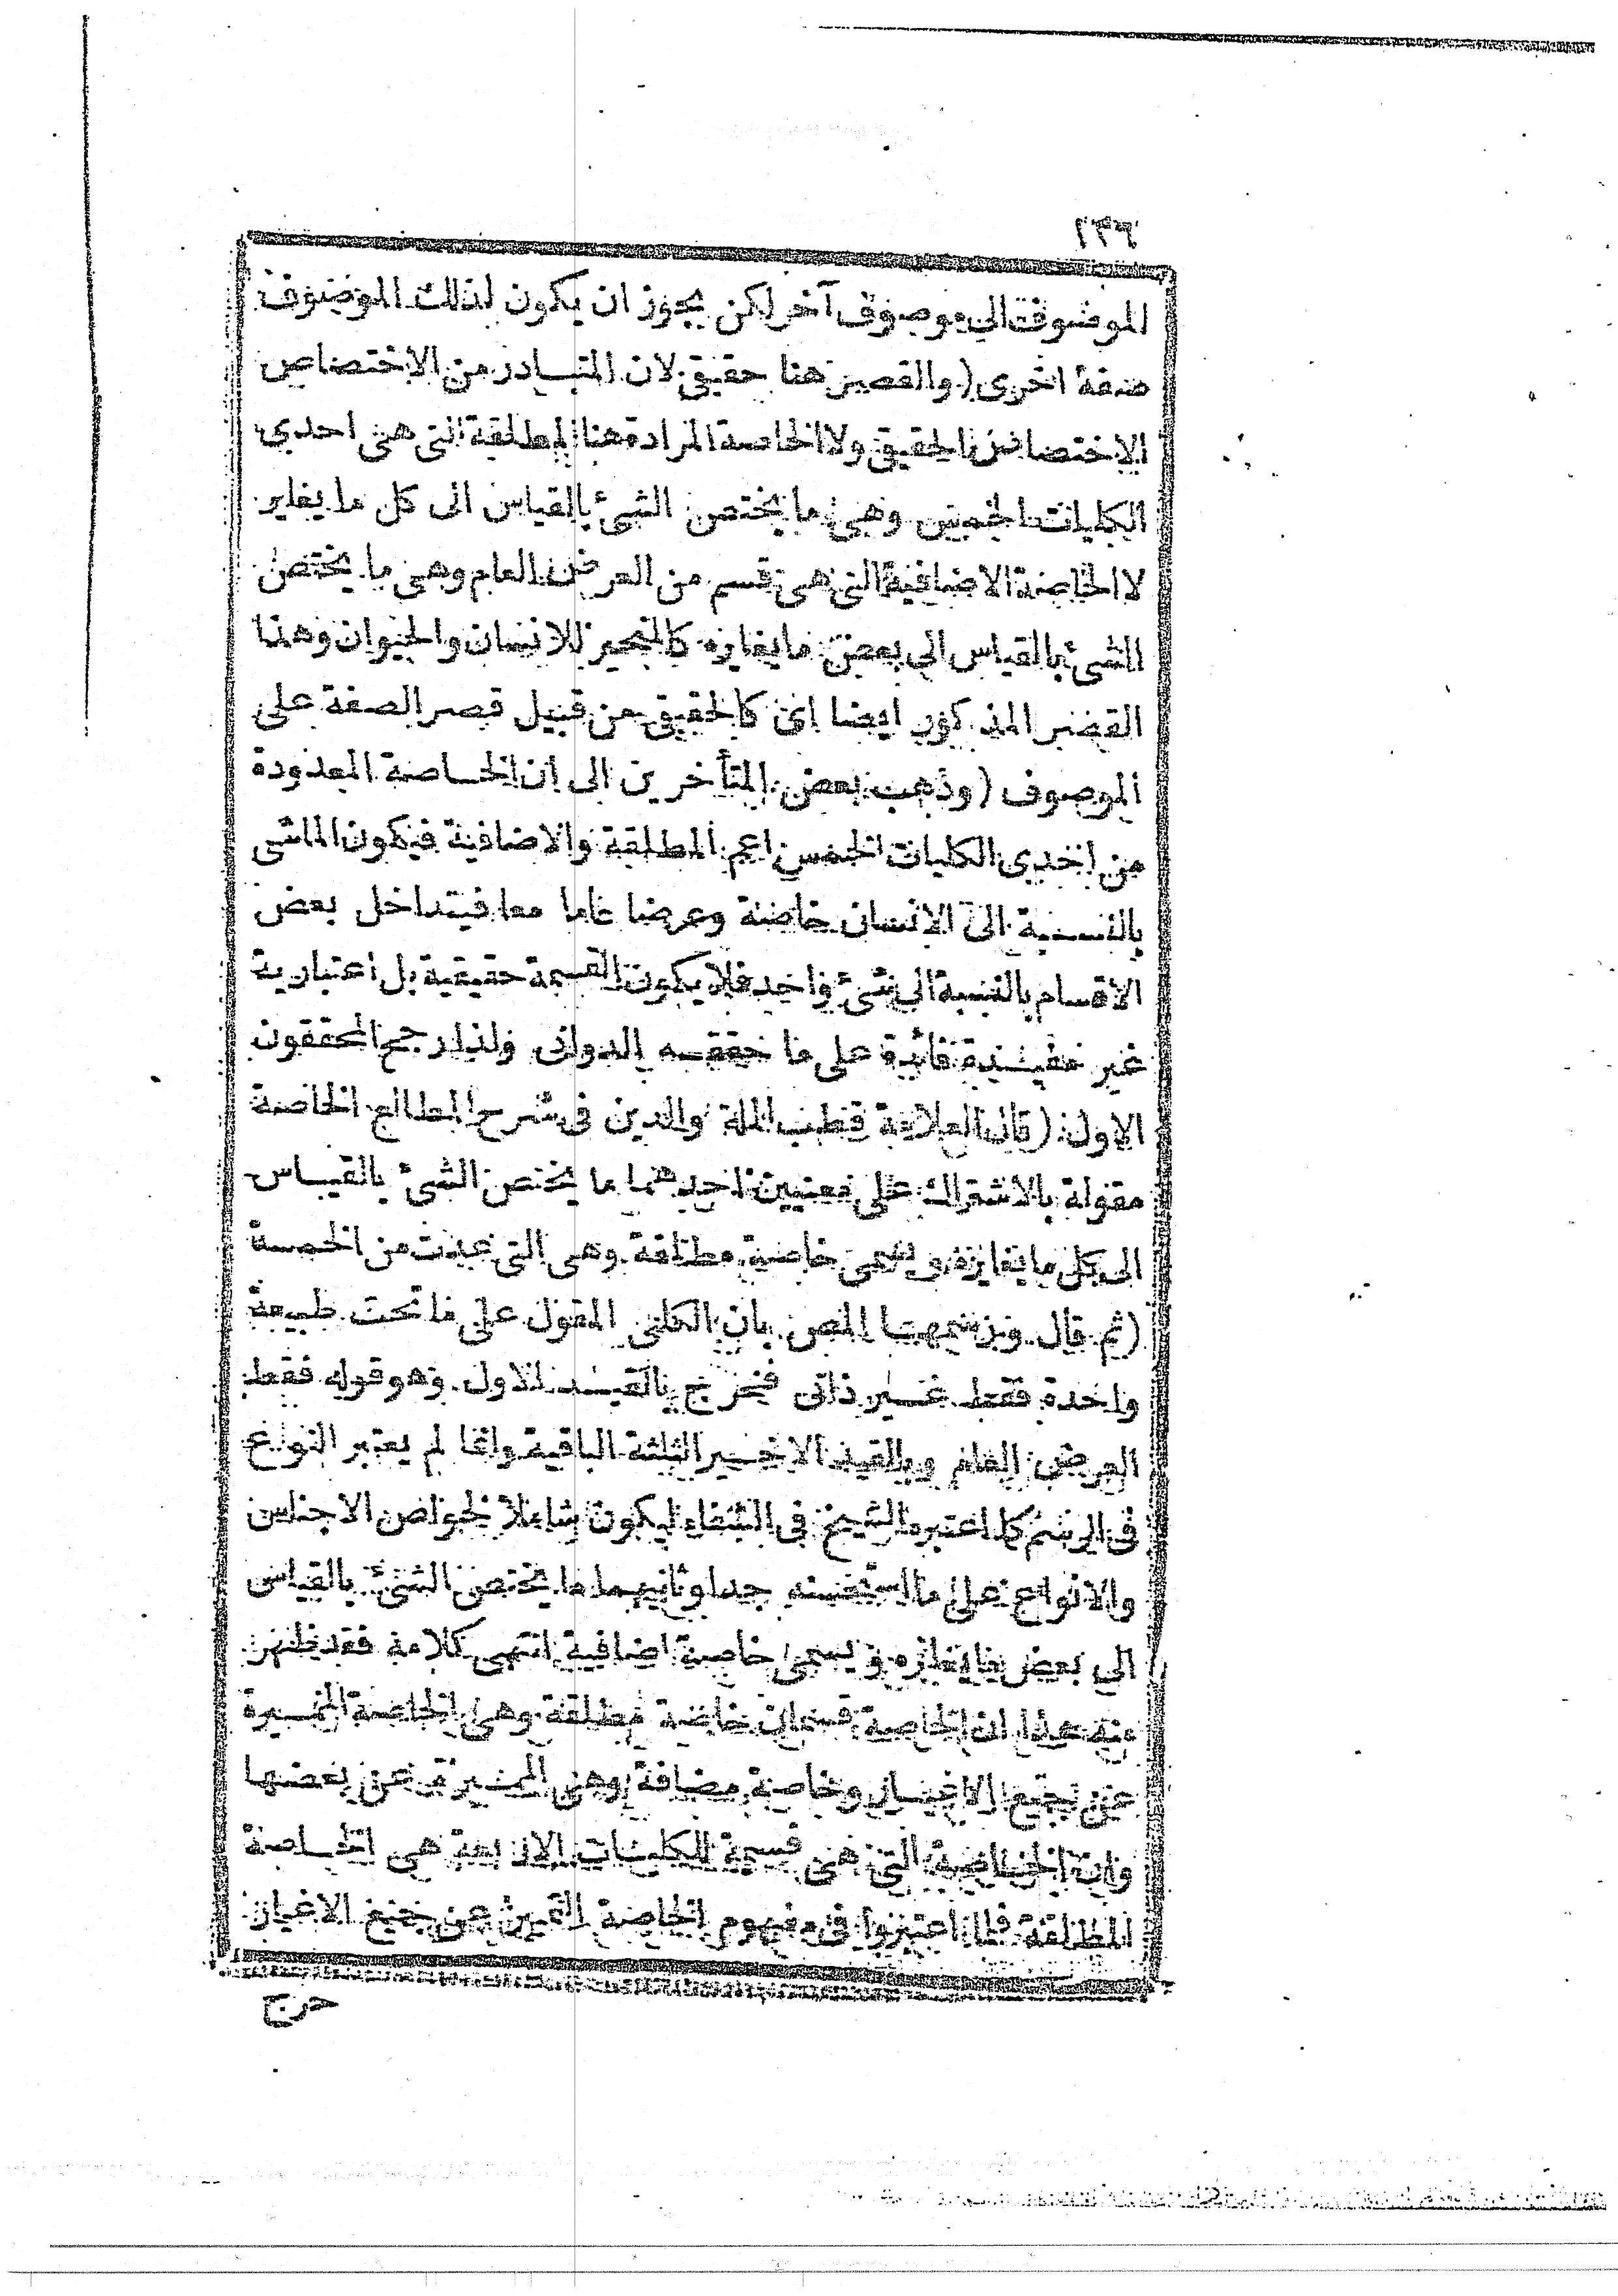 ٢٣٦
الموصوف الى موصوف آخر لكن يجوز ان يكون لذلك الموصوف
صفة اخرى (والقصر هنا حقيقى لان المتبادر من الاختصاص
الاختصاص الحقيقى ولا الخاصة المرادة هنا المطلقة التى هى احدى
الكليات الخمس وهى ما يختص الشئ بالقياس الى كل ما يغاير
لا الخاصة الاضافية التى هى قسم من العرض العام وهى ما يختص
الشئ بالقياس الى بعض ما يغايره كالمتحيز للانسان والحيوان وهذا
القصر المذكور ايضا اى كالحقيقى من قبيل قصر الصفة على
الموصوف (وذهب بعض المتأخرين الى ان الخاصة المعدودة
من احدى الكليات الخمس اعم المطلقة والاضافية فيكون الماشى
بالنسبة الى الانسان خاصة وعرضا عاما معا فيتداخل بعض
الاقسام بالنسبة الى شئ واحد فلا يكون القسمة حقيقية بل اعتبارية
غير مفيدة فائدة على ما حققه الدوانى ولذا رجح المحققون
الاول (قال العلامة قطب الملة والدين فى شرح المطالع الخاصة
مقولة بالاشتراك على معنيين احدهما ما يختص الشئ بالقياس
الى كل ما يغايره ويسمى خاصة مطلقة وهى التى عدت من الخمسة
(ثم قال ورسمها المص بان الكلى المقول على ما تحت طبيعة
واحدة فقط غير ذاتى فخرج بالقيد الاول وهو قوله فقط
العرض العام وبالقيد الاخير الثلثة الباقية وانما لم يعتبر النوع
فى الرسم كما اعتبره الشيخ فى الشفاء ليكون شاملا لخواص الاجناس
والانواع على ما استحسنه جدا وثانيهما ما يختص الشئ بالقياس
الى بعض ما يغايره ويسمى خاصة اضافية انتهى كلامه فقد ظهر
منه هذا ان الخاصة قسمان خاصة مطلقة وهى الخاصة المميزة
عن جميع الاغيار وخاصة مضافة وهى المميزة عن بعضها
وان الخاصة التى هى قسيمة للكليات الاربعة هى الخاصة
المطلقة فلما اعتبروا فى مفهوم الخاصة التميز عن جميع الاغيار
خرج